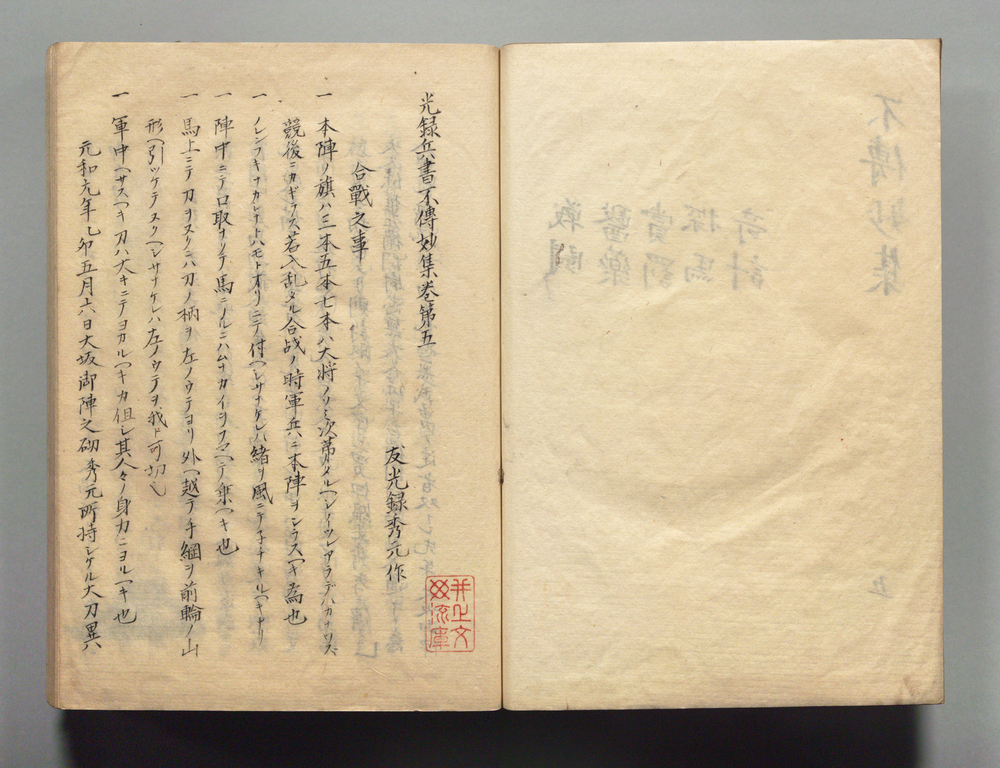 光録兵書不傳妙集巻第五
友光録秀元作
合戰之事
一 本陣ノ旗ハ三本五本七本ハ大将ノシルシ次第タルヘシイツレアラデハカナワズ
競後ニカギラス若入乱タル合戦ノ時軍兵ニ本陣ヲシラスヘキ為也
一 ノレンフキナカシナトハモトオリニテ付ヘシサナケレハ緒リ風ニテチキルヘキナリ
一 陣中ニテ口取ヲソラ馬ニノルニハムナカイヲフマヘテ乗ヘキ也
一 馬上ニテ刀ヲヌクニハ刀ノ柄ヲ左ノウテヨリ外ヘ越テ手綱ヲ前輪ノ山
形ヘ引ツケテヌクヘシサナケレハ左ノウテヲ我ト可切也
一 軍中ヘサスヘキ刀ハ大キニテヨカルヘキカ但シ其人々ノ身力ニヨルヘキ也
元和元年乙卯五月六日大坂御陣之砌秀元所持シケル大刀異六
井上文
流庫
不傳妙集
奇計
探馬
賞罰
醫樂
戦闘
五